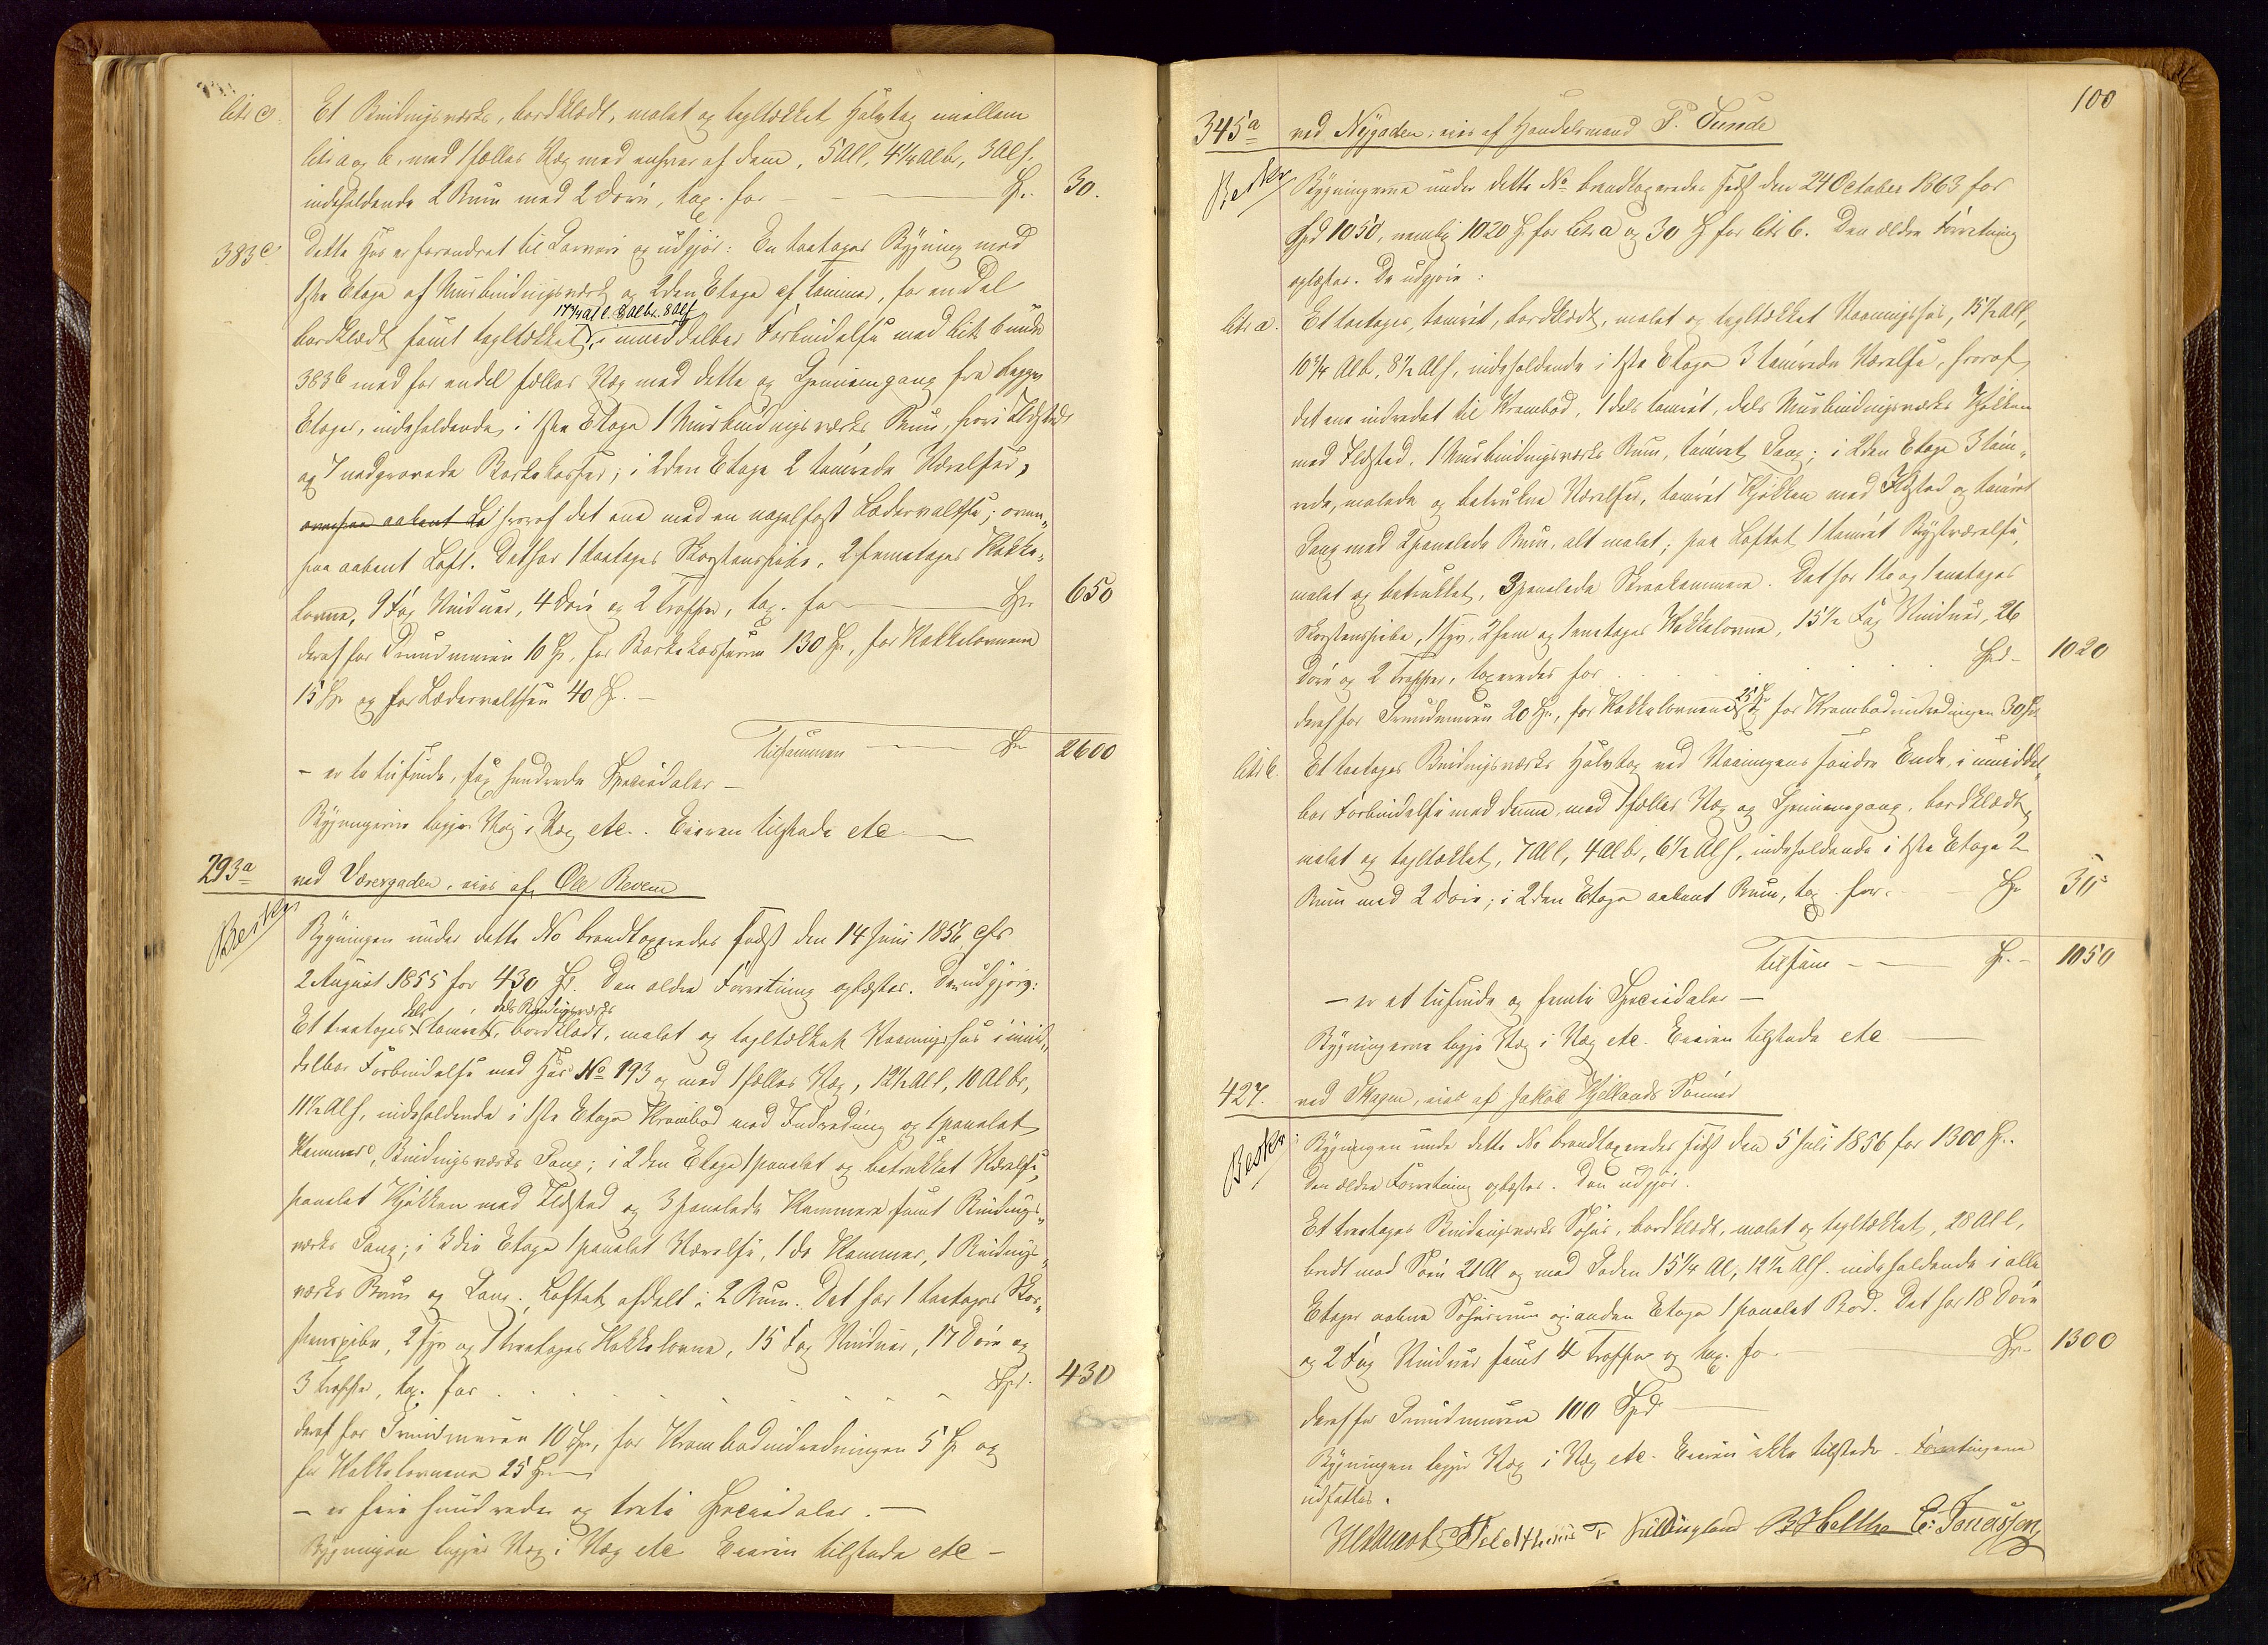 litr c. Et Bindingsværks, bordklædt, malet og tegltækket Halvtag imellem
litr a og b, med 1 fælles Væg med enhver af dem, 5 Al l, 4 1/4 Al br, 3 Al h.
indeholdende 2 Rum med 2 Döre, tax. for — — — Sp. 30.
383 c. Dette Hus er forandret til Garveri og udgjör: En toetages Bygning med
1ste Etage af Murbindingsværk og 2den Etage af Tömmer, for en Del
17 3/4 Al l. 8 Al br. 8 Al h
bordklædt samt tegltækket, i umiddelbar Forbindelse med litr b under
383 b med for endel fælles Væg med dette og Gjennemgang fra begges
Etager, indeholdende, i 1ste Etage 1 Murbindingsværks Rum, hvori Ildsted
og 7 nedgravede Barkekasser; i 2den Etage 2 tömrede Værelser,
ovenpaa aabent Lo hvoraf det ene med en nagelfast Lædervaltse; oven„
paa aabent Loft. Det har 1 toetages Skorstenspibe, 2 femetages Kakke„
lovne, 9 Fag Vinduer, 4 Döre og 2 Trapper, tax. for — Sp. 650
deraf for Grundmuren 10 Sp, for Barkekasserne 130 Sp, for Kakkelovnene
15 Sp og for Lædervaltsen 40 Sp. —
Tilsammen — Sp 2600
— er to tusinde, sex hundrede Speciedaler —
Bygningerne ligge Væg i Væg etc. Eieren tilstede etc. —
293 a ved Værvgaden, eies af Ole Revem
Beskr Bygningen under dette No brandtaxeredes sidst den 14 Juni 1856, cfr
2 August 1855 for 430 Sp. Den ældre Forretning oplæstes. Den udgjör:
dels dels Bindingsværks
Et treetages tömret, bordklædt, malet og tegltækket Vaaningshus i umid„
delbar Forbindelse med Hus No 193 og med 1 fælles Væg, 12 1/2 Al l, 10 Al br,
11 1/2 Al h, indeholdende i 1ste Etage Krambod med Indredning og 1 panelet
Kammer, Bindingsværks Gang; i 2den Etage 1 panelet og betrukket Værelse,
panelet Kjökken med Ildsted og 3 panelede Kammere samt Bindings„
værks Gang; i 3die Etage 1 panelet Værelse, 1 do Kammer, 1 Bindings„
værks Rum og Gang. Loftet afdelt i 2 Rum. Det har 1 toetages Skor„
stenspibe, 2 fyr og 1 treetages Kakkelovne, 15 Fag Vinduer, 17 Döre og
3 Trapper, tax. for . . . . . Spd. 430
deraf for Grundmuren 10 Sp, for Krambodindredningen 5 Sp og
for Kakkelovnene 25 Sp —
— er fire hundrede og treti Speciedaler. —
Bygningen ligger Væg i Væg etc Eieren tilstede etc —
100
345 a ved Nygaden; eies af Handelsmand P. Sunde
Beskr Bygningerne under dette No brandtaxeredes sidst den 24 October 1863 for
Spd 1050, nemlig 1020 Sp for litr a og 30 Sp for litr b. Den ældre Forretning
oplæstes. De udgjöre:
litr a. Et toetages, tömret, bordklædt, malet og tegltækket Vaaningshus, 15 1/2 Al l,
10 3/4 Al b, 8 1/2 Al h, indeholdende i 1ste Etage 3 tömrede Værelser, hvoraf
det ene indredet til Krambod, 1 dels tömret, dels Murbindingsværks Kjökken
med Ildsted, 1 Murbindingsværks Rum, tömret Gang; i 2den Etage 3 töm„
rede, malede og betrukne Værelser, tömret Kjökken med Ildsted og tömret
Gang med 2 panelede Rum, alt malet; paa Loftet 1 tömret Kvistværelse,
malet og betrukket, 3 panelede Skraakammere. Det har 1 to og 1 enetages
Skorstenspibe, 1 fyr, 2 fem og 1 enetages Kakkelovne, 15 1/2 Fag Vinduer, 26
Döre og 2 Trapper, taxeredes for . . . . Spd — 1020
deraf for Grundmuren 20 Sp, for Kakkelovnene 25 Sp og for Krambodindredningen 30 Sp
litr b. Et toetages Bindingsværks Halvtag ved Vaaningens söndre Ende, i umiddel„
bar Forbindelse med denne, med 1 fælles Væg og Gjennemgang, bordklædt,
malet og tegltækket, 7 Al l, 4 Al br, 6 1/2 Al h, indeholdende i 1ste Etage 2
Rum med 2 Döre; i 2den Etage aabent Rum, tax. for — Sp 30
Tilsam — Sp. — 1050
— er et tusinde og femti Speciedaler —
Bygningerne ligge Væg i Væg etc. Eieren tilstede etc —
427. ved Skagen, eies af Jakob Kjellands Sönner
Beskr: Bygningen under dette No brandtaxeredes sidst den 5 Juli 1856 for 1300 Sp.
Den ældre Forretning oplæstes. Den udgjör.
Et treetages Bindingsværks Söhus, bordklædt, malet og tegltækket, 28 Al l,
bredt mod Söen 21 Al og mod Gaden 15 1/4 Al, 12 1/2 Al h. indeholdende i alle
Etager aabne Söhusrum og i anden Etage 1 panelet Bod. Det har 18 Döre
og 2 Fag Vinduer samt 4 Trapper og tax. for — Sp. 1300
deraf for Grundmuren 100 Spd —
Bygningen ligger Væg i Væg etc. Eieren ikke tilstede. Forretningerne
udsattes.
B Helthe E: Tonassen